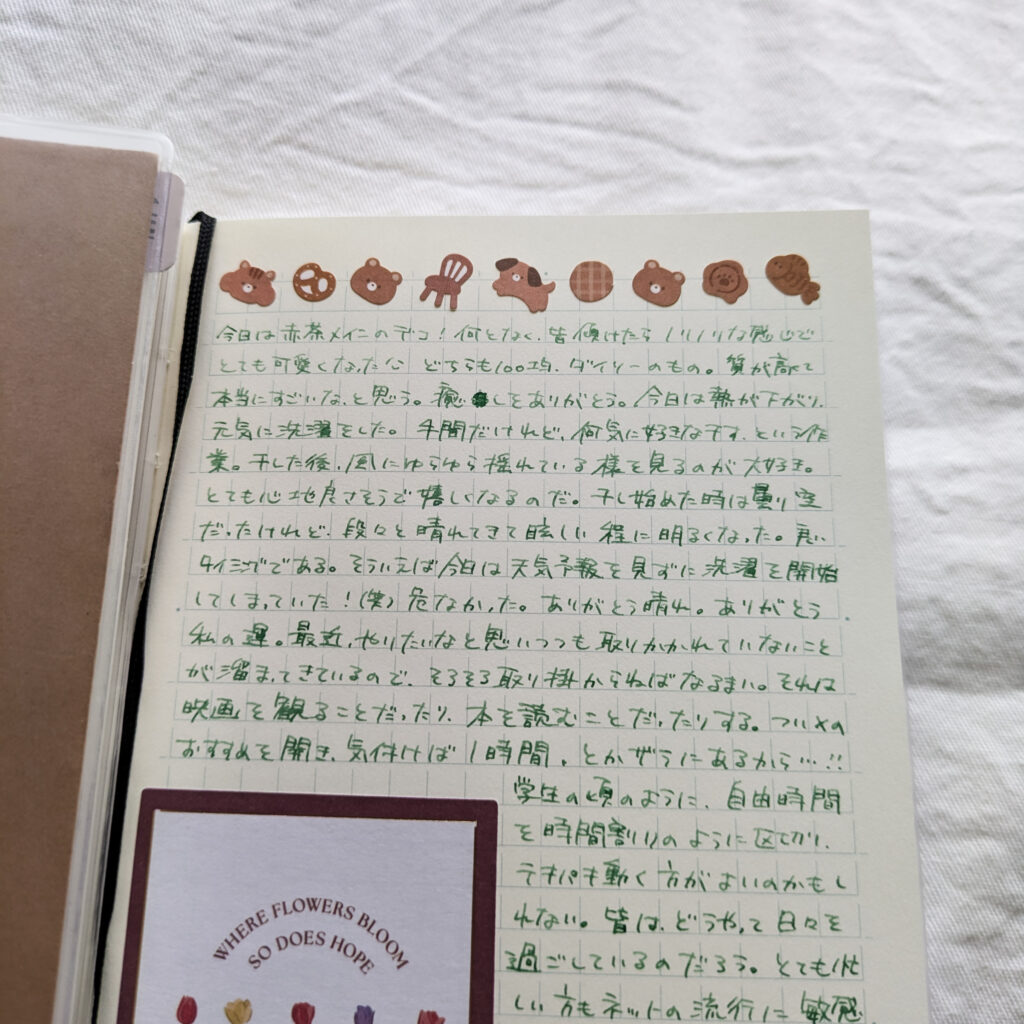 今日は赤茶メインのデコ!何となく、皆傾けたらノリノリな感じで
とても可愛くなった♡ どちらも100均、ダイソーのもの。質が高くて
本当にすごいな、と思う。癒しをありがとう。今日は熱が下がり、
元気に洗濯をした。手間だけれど、何気に好きな干す、という作
業。干した後、風にゆらゆら揺れている様を見るのが大好き。
とても心地良さそうで嬉しくなるのだ。干し始めた時は曇り空
だったけれど、段々と晴れてきて眩しい程に明るくなった。良い
タイミングである。そういえば今日は天気予報を見ずに洗濯を開始
してしまっていた!(笑)危なかった。ありがとう晴れ。ありがとう
私の運。最近、やりたいなと思いつつも取りかかれていないこと
が溜まってきているので、そろそろ取り掛からねばなるまい。それは
映画を観ることだったり、本を読むことだったりする。ついXの
おすすめを開き、気付けば1時間、とかザラにあるから…!!
学生の頃のように、自由時間
を時間割りのように区切り、
テキパキ動く方がよいのかもし
れない。皆は、どうやって日々を
過ごしているのだろう。とても忙
しい方もネットの流行に敏感
WHERE FLOWERS BLOOM
SO DOES HOPE